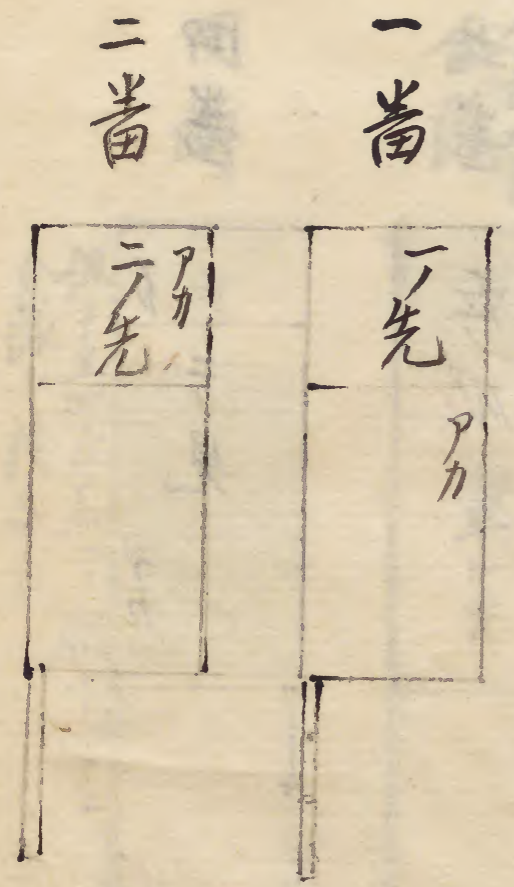 一番
一ノ先
アカ
二番
アカ
二ノ先